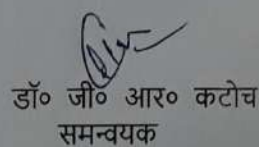 डॉ० जी० आर० कटोच
समन्वयक